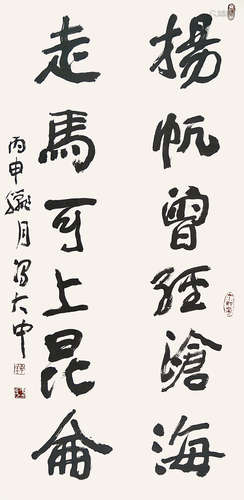 揚帆曾經滄海
走馬可上昆侖
丙申臘月馮大中